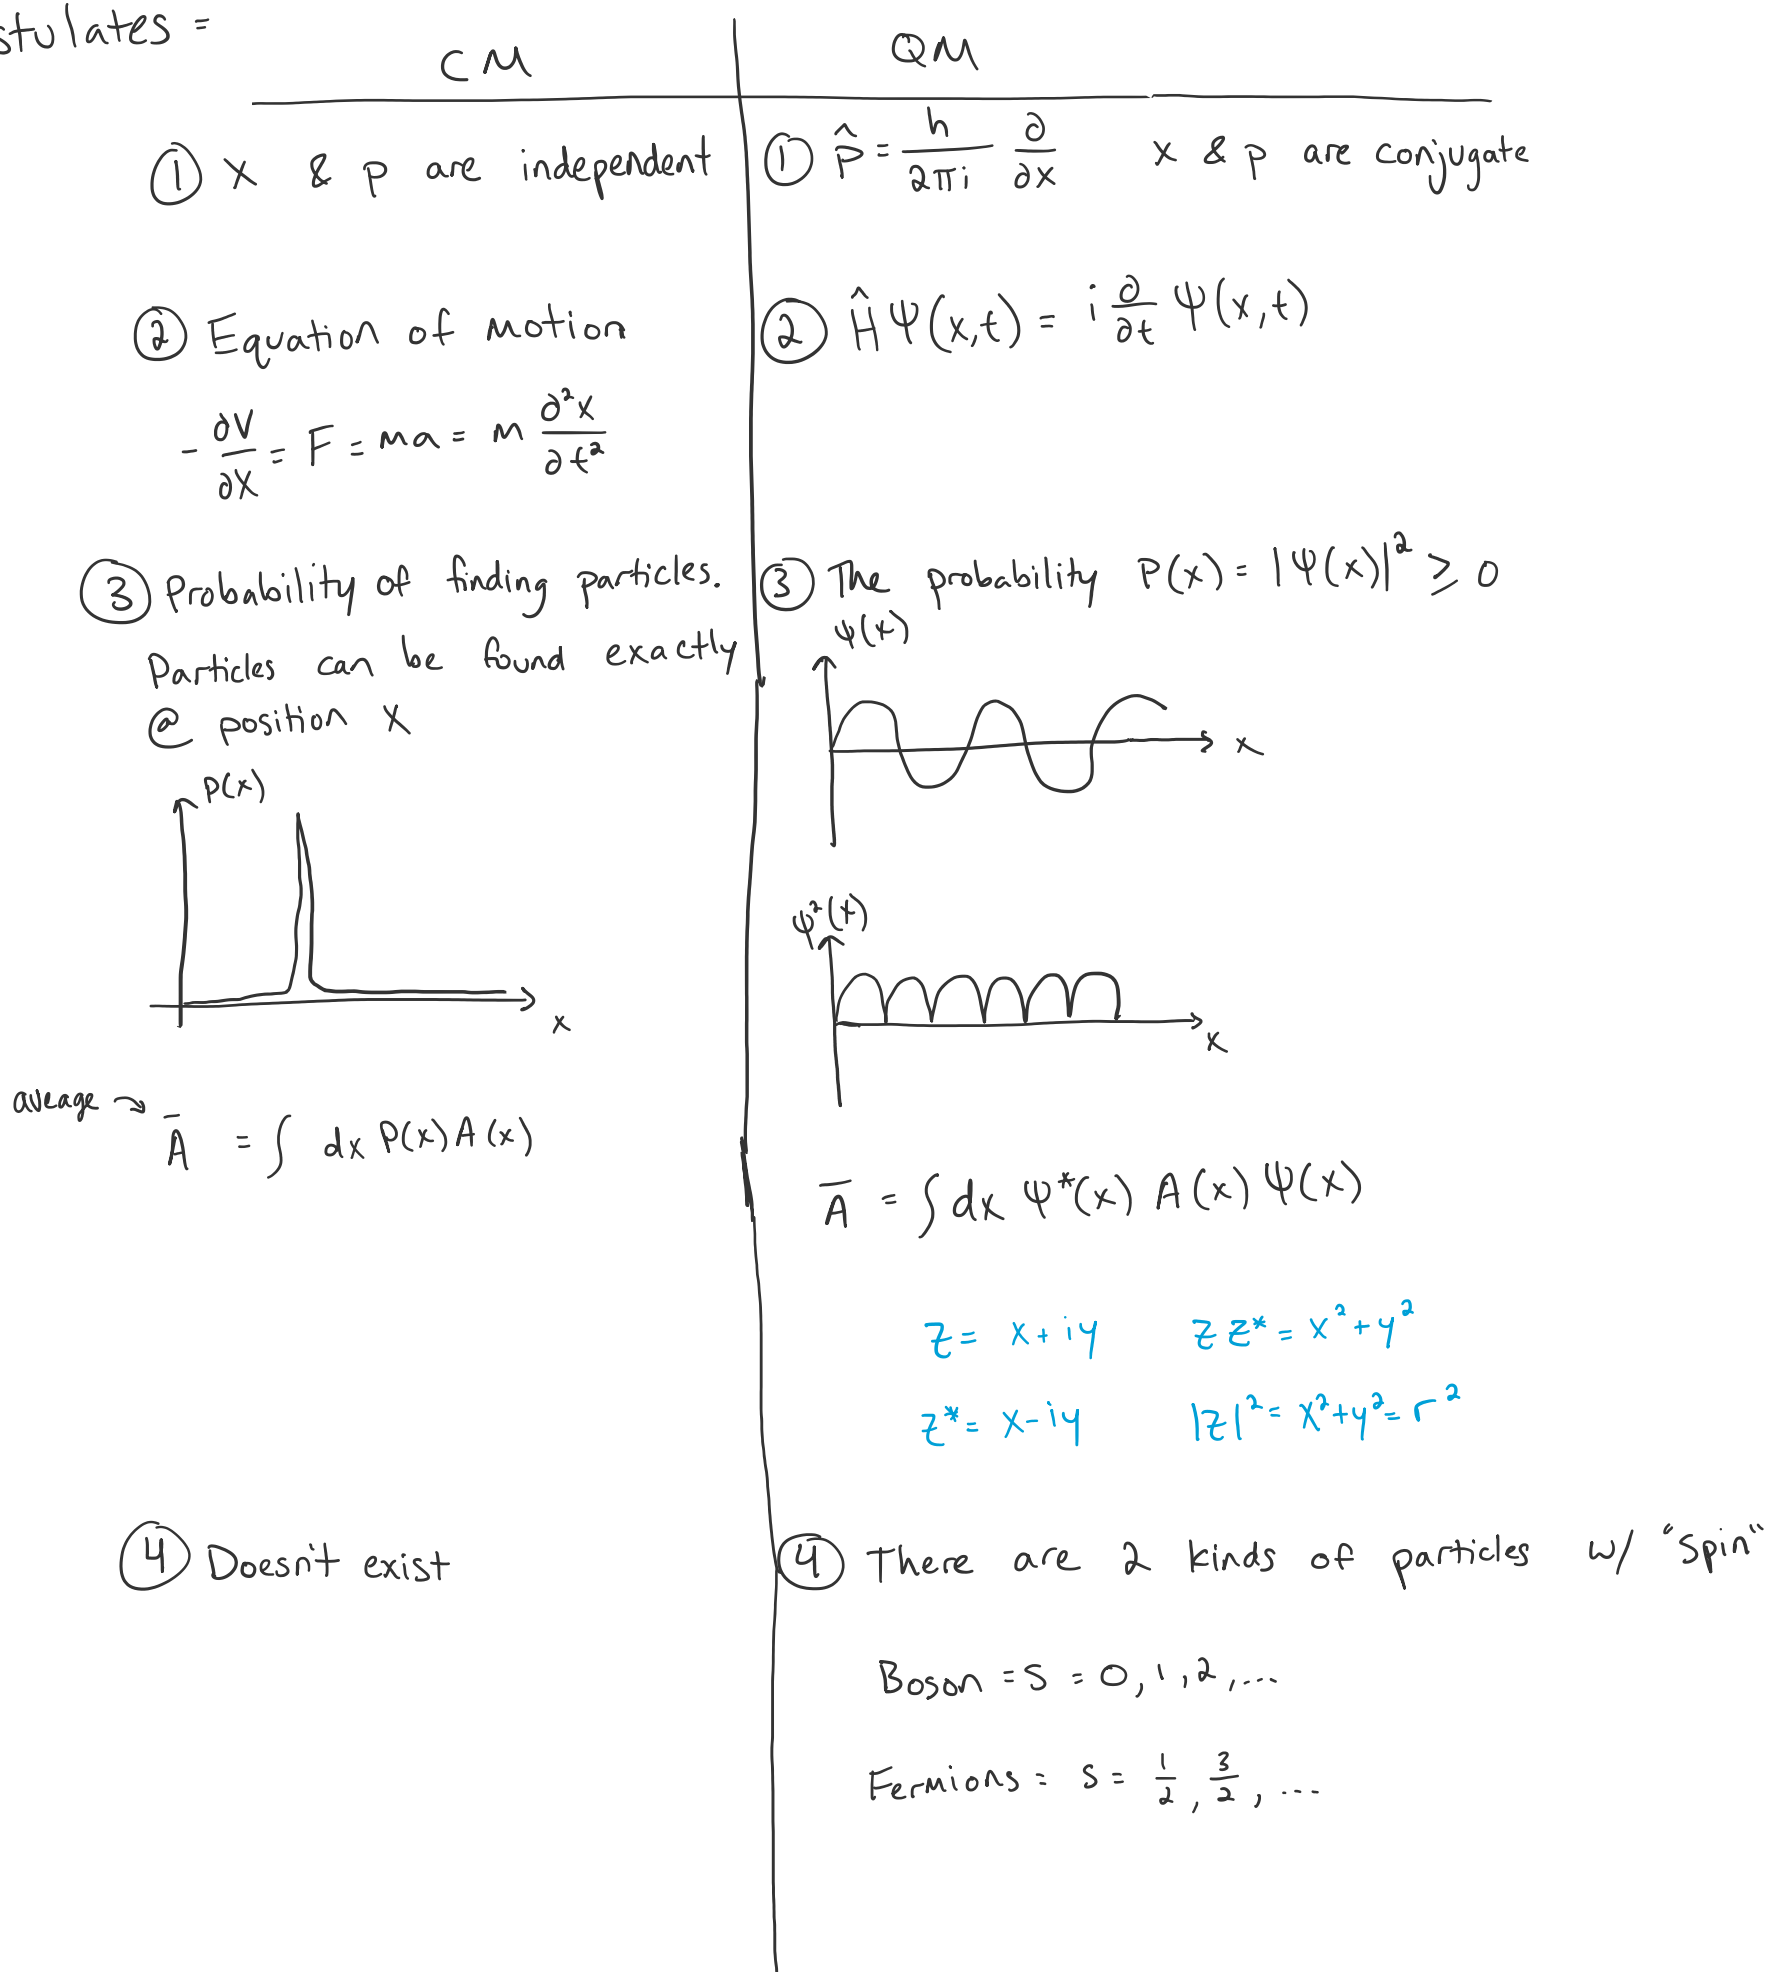 stulates =
CM
QM
① x & p are independent
② Equation of motion
-∂V/∂x = F = ma = m ∂²x/∂t²
③ Probability of finding particles.
Particles can be found exactly
@ position x
P(x)
x
aveage → Ā = ∫ dx P(x) A(x)
④ Doesn't exist
① p̂ = h/2πi ∂/∂x x & p are conjugate
② ĤΨ(x,t) = i ∂/∂t Ψ(x,t)
③ The probability P(x) = |Ψ(x)|² ≥ 0
Ψ(x)
x
Ψ²(x)
x
Ā = ∫ dx Ψ*(x) A(x) Ψ(x)
z = x + iy z z* = x² + y²
z* = x - iy |z|² = x² + y² = r²
④ There are 2 kinds of particles w/ "Spin"
Boson = S = 0, 1, 2, ...
Fermions = S = 1/2, 3/2, ...